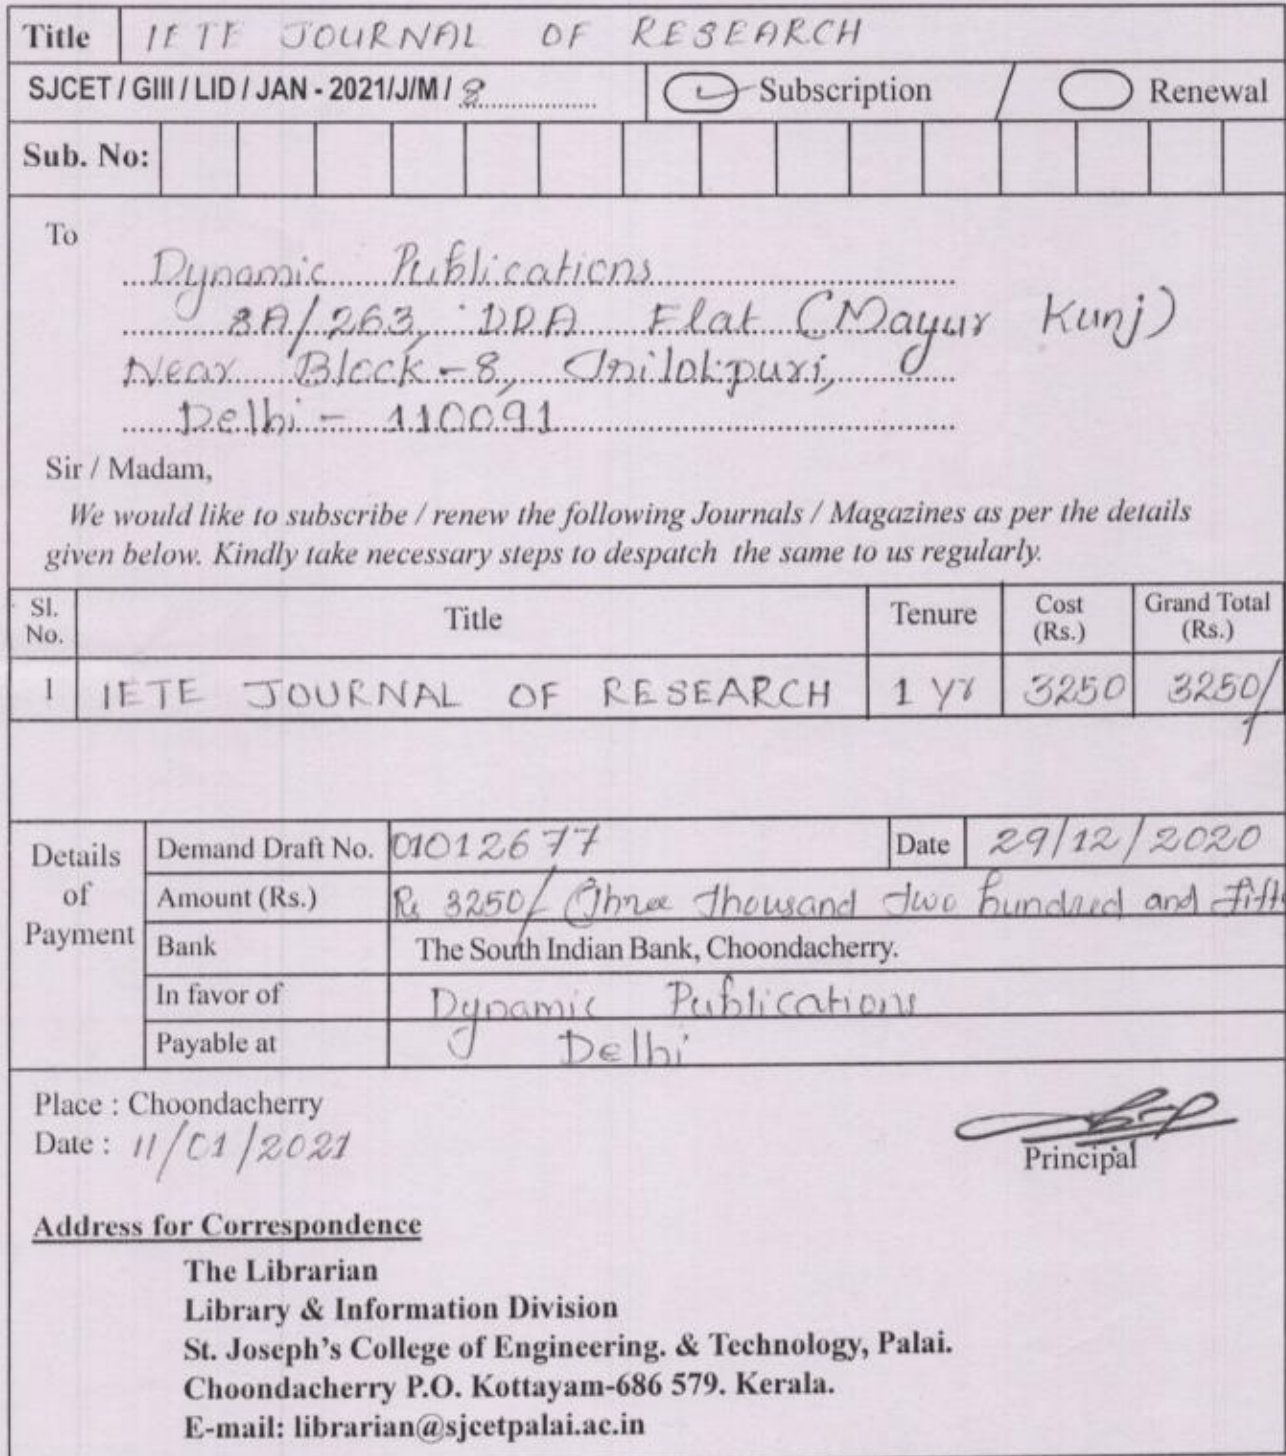 Title IETE JOURNAL OF RESEARCH
SJCET / GIII / LID / JAN - 2021/J/M / 8 Subscription / Renewal
Sub. No:
To
Dynamic Publications
8A/263, DDA Flat (Mayur Kunj)
Near Block-8, Trilokpuri,
Delhi - 110091
Sir / Madam,
We would like to subscribe / renew the following Journals / Magazines as per the details
given below. Kindly take necessary steps to despatch the same to us regularly.
Sl. No. Title Tenure Cost (Rs.) Grand Total (Rs.)
1 IETE JOURNAL OF RESEARCH 1 yr 3250 3250/
Details of Payment
Demand Draft No. 01012677 Date 29/12/2020
Amount (Rs.) Rs 3250/- (Three thousand two hundred and fift
Bank The South Indian Bank, Choondacherry.
In favor of Dynamic Publications
Payable at Delhi
Place : Choondacherry
Date : 11/01/2021
Principal
Address for Correspondence
The Librarian
Library & Information Division
St. Joseph's College of Engineering. & Technology, Palai.
Choondacherry P.O. Kottayam-686 579. Kerala.
E-mail: librarian@sjcetpalai.ac.in